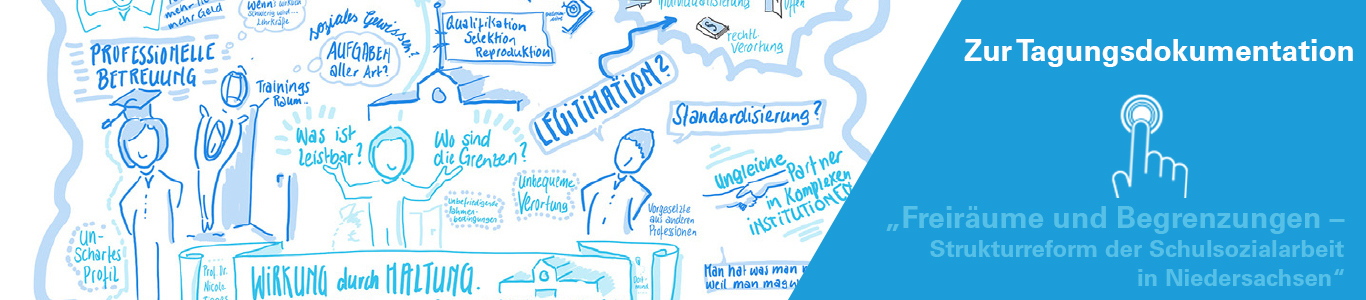 mehr Geld
Wenn's einfach
schwierig wird...
Lehrkräfte
PROFESSIONELLE
BETREUUNG
Trainings
Raum..
soziales Gewissen?
AUFGABEN
aller Art?
Qualifikation
Selektion
Reproduktion
LEGITIMATION?
Individualisierung
Offen
rechtl.
Verortung
Standardisierung?
Was ist
leistbar?
Wo sind
die Grenzen?
Unbefriedigende
Rahmen-
bedingungen
Unbequeme
Verortung
Vorgesetzte
aus anderen
Professionen
Ungleiche
Partner
in Komplexen
INSTITUTIONEN
Un-
scharfes
Profil
Prof. Dr.
Nicole
WIRKUNG durch HALTUNG.
Man hat was man
weil man mag
Zur Tagungsdokumentation
„Freiräume und Begrenzungen –
Strukturreform der Schulsozialarbeit
in Niedersachsen“